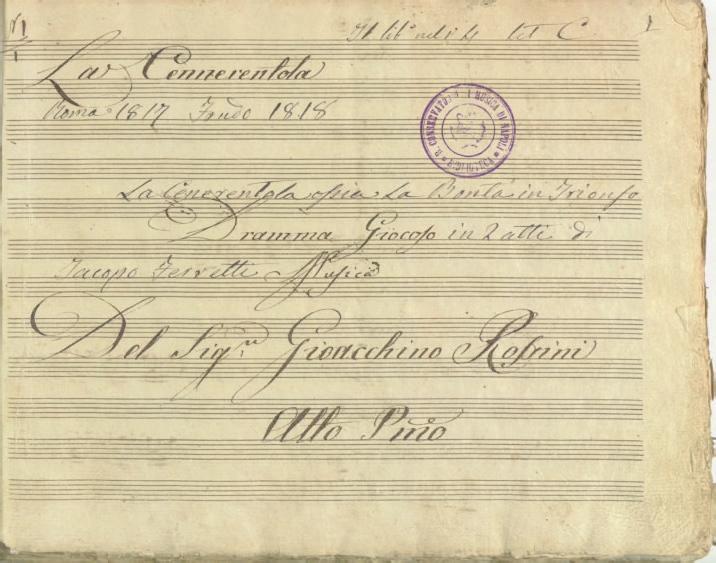 1
La Cennerentola
Roma 1817
1818
R. CONSERVATORIO DI MUSICA DI NAPOLI * BIBLIOTECA *
La Cenerentola ossia La Bontà in Trionfo
Dramma Giocoso in 2 atti di
Jacopo Ferretti Musica
Del Sig.re Gioacchino Rossini
Atto Pmo